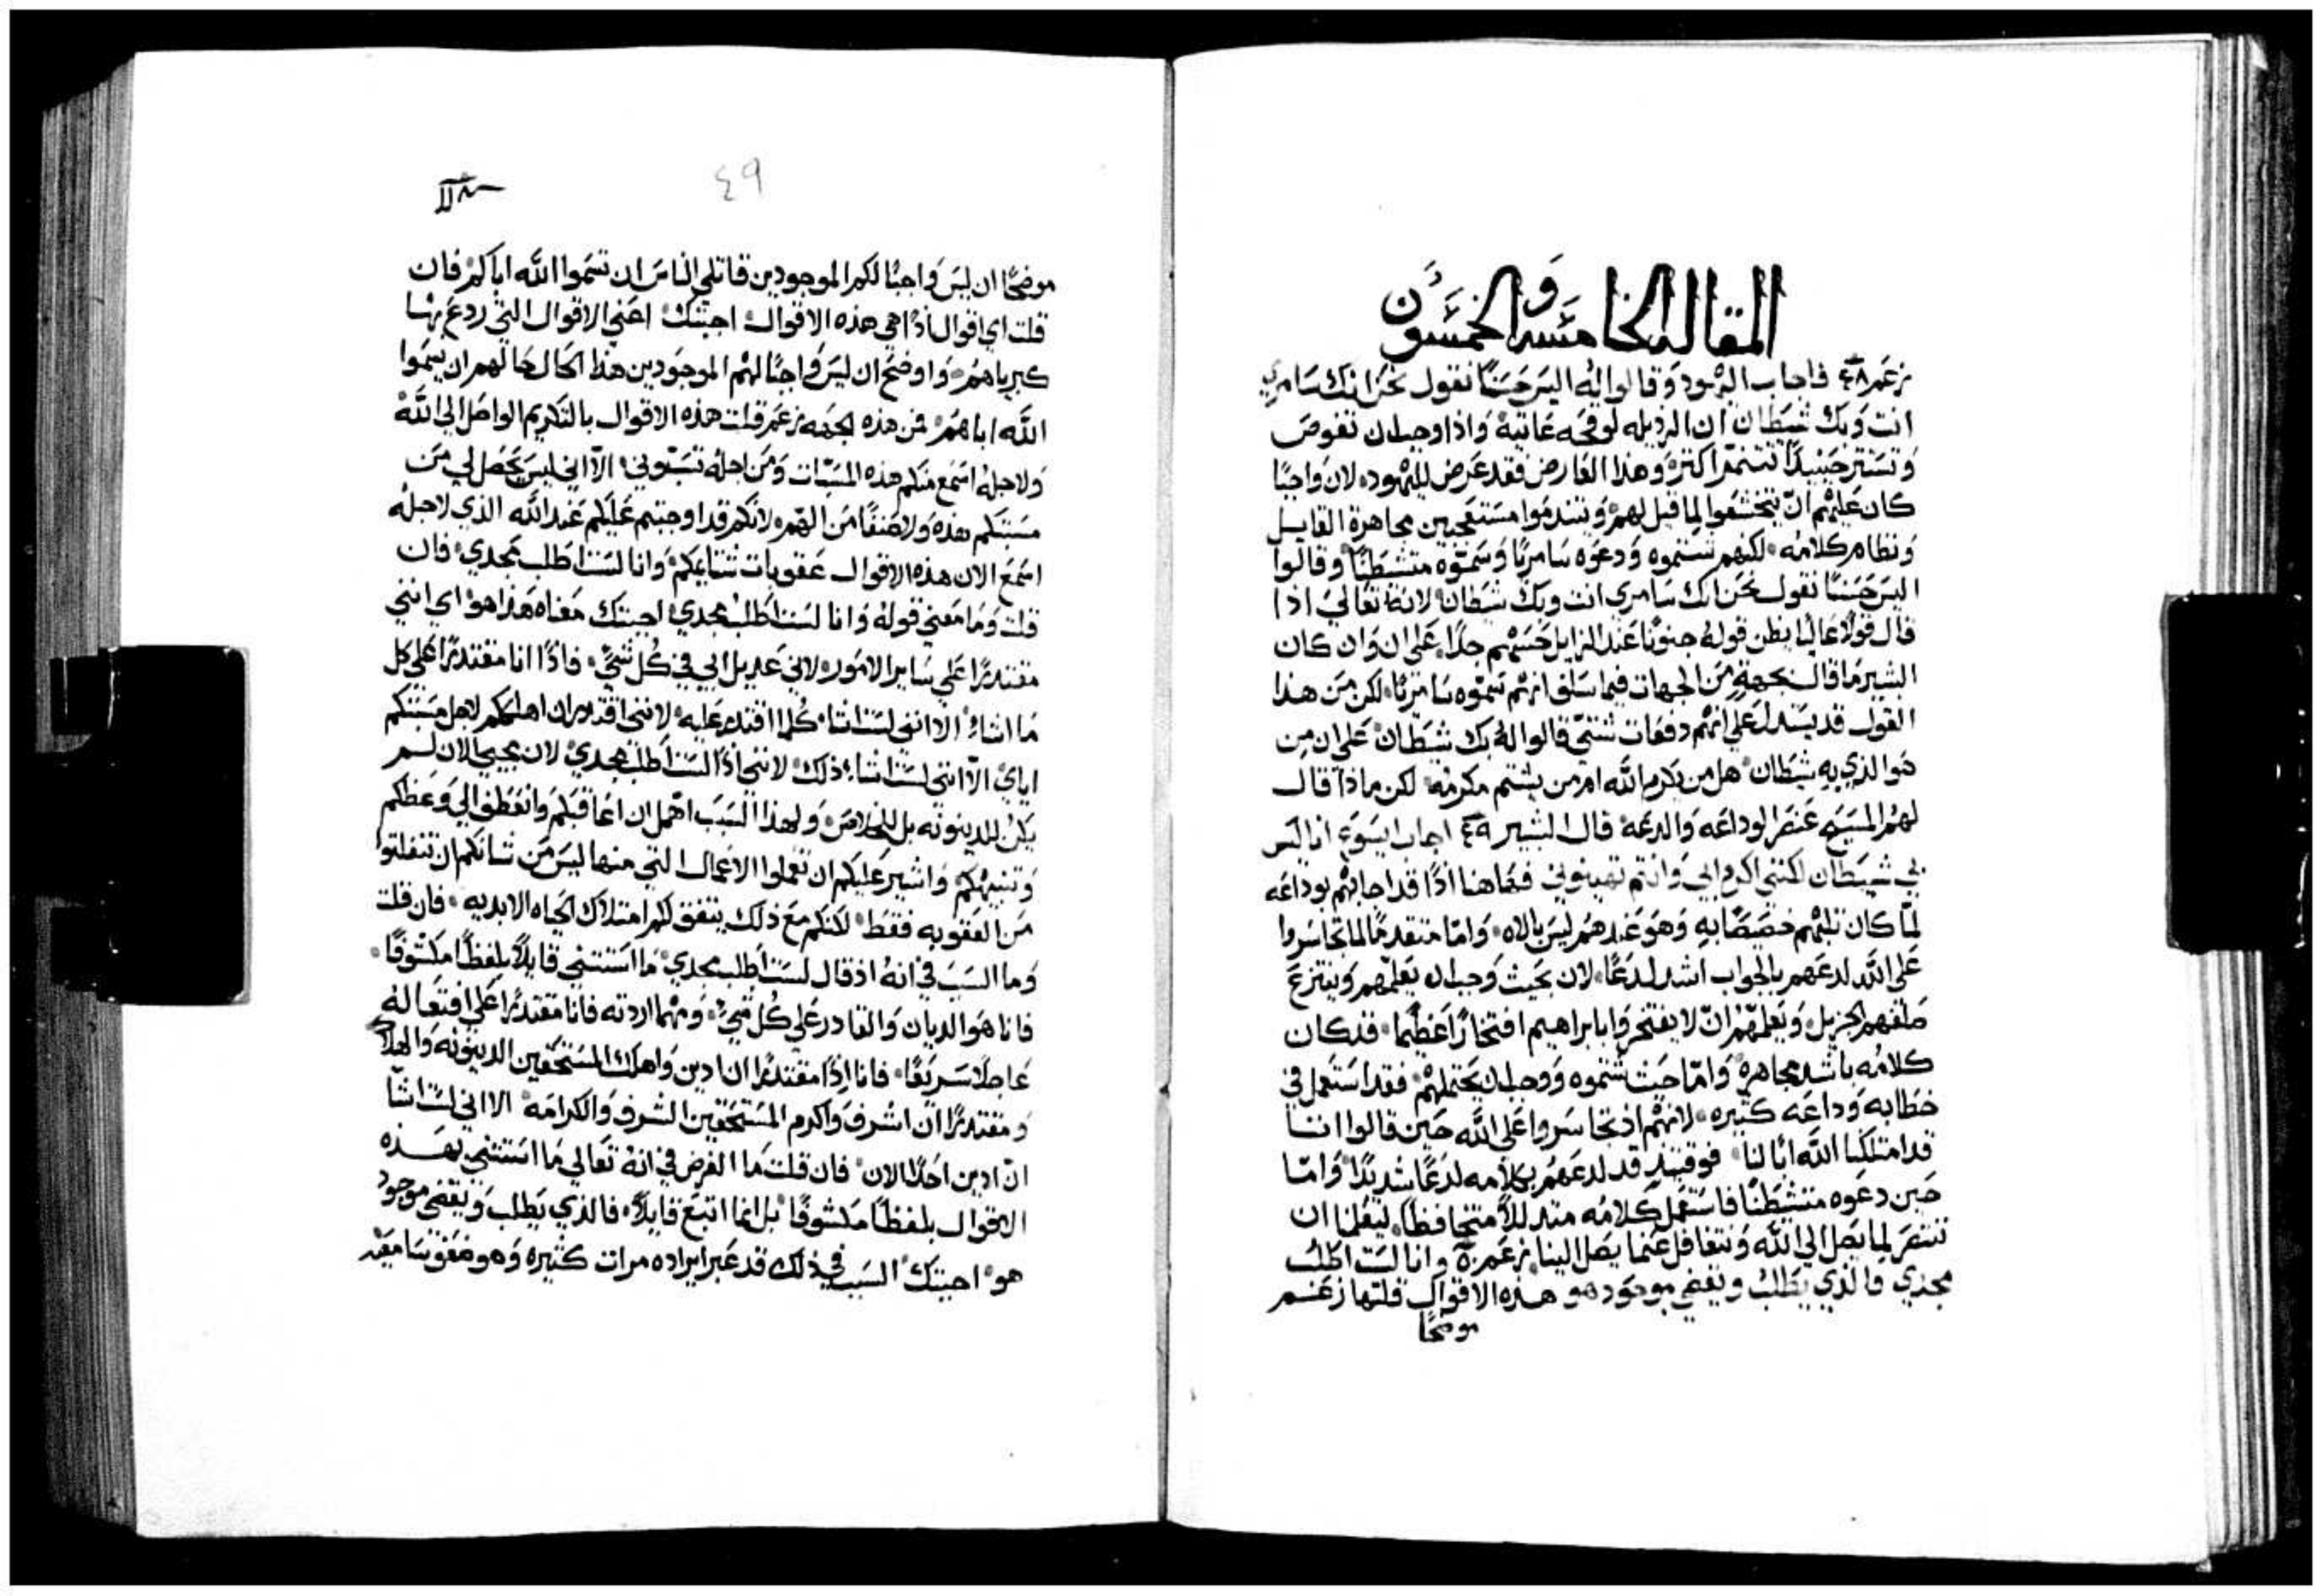 المقاله الخامسه والخمسون
زعم ٤٨ فاجاب اليهود وقالوا له اليس حسنًا نقول نحن انك سامري
انت وبك شيطان ان الرذيله لوقحه عاتية واذا وجب ان تغوص
وتستتر حينيذًا تتنمر اكثر وهذا العارض فقد عرض لليهود لان واجبًا
كان عليهم ان يتخشعوا لما قيل لهم ويتندموا مستعجبين مجاهرة القايل
ونظام كلامه لكنهم شتموه ودعوه سامريًا وسموه متشيطنًا وقالوا
اليس حسنًا نقول نحن انك سامري انت وبك شيطان لانه تعالي اذا
قال قولًا عاليًا يظن قوله جنونًا عند الزايل حسهم جدًا علي ان وان كان
البشير ما قال بجهة من الجهات فيما سلف انهم سموه سامريًا لكن من هذا
القول قد يستدل علي انهم دفعات شتي قالوا له بك شيطان علي ان من
هو الذي به شيطان هل من يكرم الله ام من يشتم مكرمه لكن ماذا قال
لهم المسيح عنصر الوداعه والدعه قال البشير ٤٩ اجاب ايسوع انا ليس
بي شيطان لكنني اكرم ابي وانتم تهينوني فهاهنا اذًا قد اجابهم بوداعه
لما كان ثلبهم خصيصًا به وهو عندهم ليس بالاه واما متقدمًا لما تجاسروا
علي الله لدعهم بالجواب اشد لدعًا لان بحيث وجب ان يعلمهم وينتزع
صلفهم الجزيل ويعلمهم ان لا يفتخروا بابراهيم افتخارًا عظيمًا فقد كان
كلامه باشد مجاهرة واما حيث شتموه ووجب ان يحتملهم فقد استعمل في
خطابه وداعه كثيره لانهم اذ تجاسروا علي الله حين قالوا اننا
قد امتلكنا الله ابًا لنا فوقتيذٍ قد لدعهم بكلامه لدعًا شديدًا واما
حين دعوه متشيطنًا فاستعمل كلامه متدللًا متحافظًا ليعلمنا ان
ننتصر لما يصل الي الله ونتغافل عنما يصل الينا زعم ٥٠ وانا لست اطلب
مجدي فالذي يطلب ويقضي موجود هو هذه الاقوال قلتها زعم
موضحًا
٤٩
موضحًا ان ليس واجبًا لكم الموجودين قاتلي الناس ان تسموا الله اباكم فان
قلت اي اقوال اذًا هي هذه الاقوال اجبتك اعني الاقوال التي ردع بها
كبرياهم واوضح ان ليس واجبًا لهم الموجودين هذا الحال حالهم ان يسموا
الله اباهم فمن هذه الجهه زعم قلت هذه الاقوال بالتكريم الواصل الي الله
ولاجله اسمع منكم هذه المسبات ومن اجله تسبوني الا اني ليس يحصل لي من
مسبتكم هذه ولا صنفًا من الهم لانكم قد اوجبتم عليكم عند الله الذي لاجله
اسمع الان هذه الاقوال عقوبات شتايمكم وانا لست اطلب مجدي فان
قلت وما معني قوله وانا لست اطلب مجدي اجبتك معناه هذا هو اي انني
مقتدرًا علي ساير الامور لاني عديل ابي في كل شي فاذًا انا مقتدرًا علي كل
ما اشاء الا انني لست اشا كلما اقتدر عليه لانني اقتدر ان اهلككم لاجل مسبتكم
اياي الا انني لست اشاء ذلك لانني اذًا لست اطلب مجدي لان مجيي الان لم
يكن للدينونه بل للخلاص ولهذا السبب اهمل ان اعاقبكم وانعطف الي وعظكم
وتنبيهكم واشير عليكم ان تعملوا الاعمال التي منها ليس من شانكم ان تنفلتوا
من العقوبه فقط لكنكم مع ذلك يتفق لكم امتلاك الحياه الابديه فان قلت
وما السبب في انه اذ قال لست اطلب مجدي ما استثني قايلًا بلفظًا مكشوفًا
فانا هو الديان والقادر علي كل شي ومهما اردته فانا مقتدرًا علي افتعاله
عاجلًا سريعًا فانا اذًا مقتدرًا ان ادين واهلك المستحقين الدينونه والهلاك
ومقتدرًا ان اشرف واكرم المستحقين الشرف والكرامه الا اني لست اشا
ان ادين احدًا الان فان قلت ما الغرض في انه تعالي ما استثني بهذه
الاقوال بلفظًا مكشوفًا بل انما اتبع قايلًا فالذي يطلب ويقضي موجود
هو اجبتك السبب في ذلك قد عبر ايراده مرات كثيره وهو ضعف سامعيه